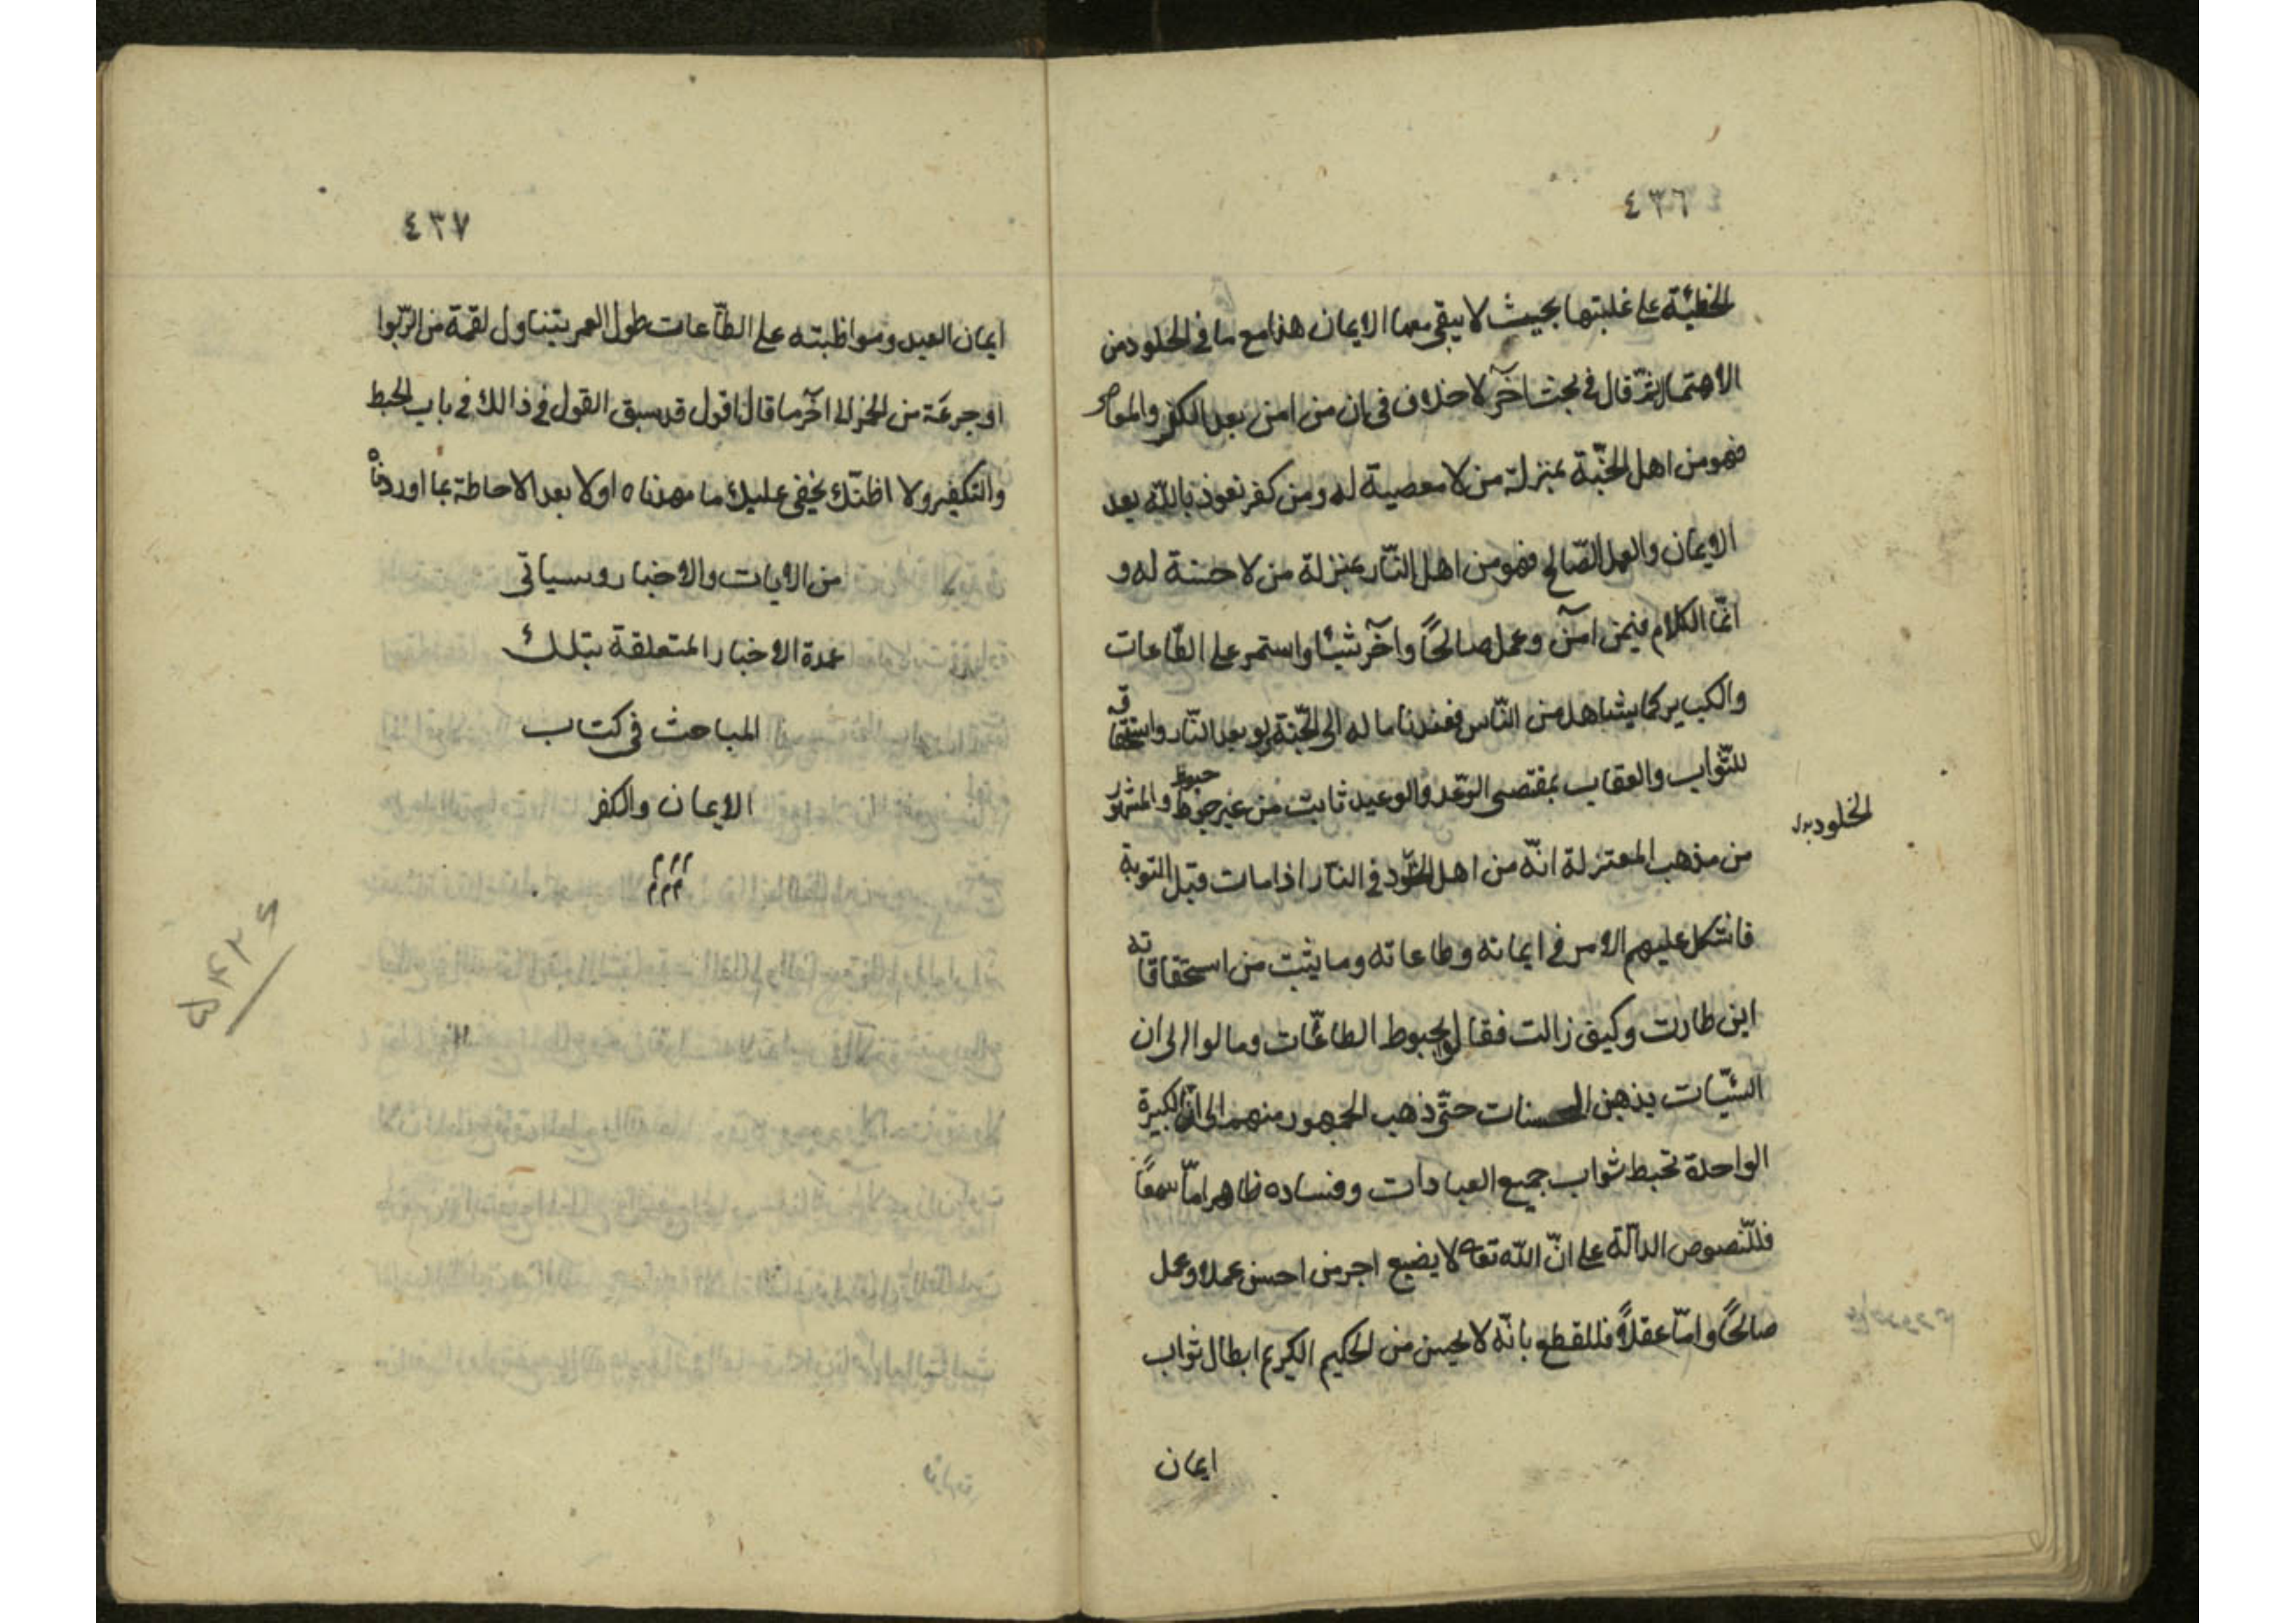 ٤٣٦
الخطيئة على غلبتها بحيث لا يبقى معها الايمان هذا مع ما في الخلود من
الاهتمال ثمّ قال في بحث آخر لا خلاف في ان من امن بعد الكفر والمعاصى
فهو من اهل الجنّة بمنزلة من لا معصية له ومن كفر نعوذ باللّه بعد
الايمان والعمل الصّالح فهو من اهل النّار بمنزلة من لا حسنة له و
انّما الكلام فيمن آمن وعمل صالحًا وآخر شيئا واستمر على الطّاعات
والكبير كما يشاهد من النّاس فعندنا ماله الى الجنّة ولو بعد النّار واستحقاقه
للثّواب والعقاب بمقتضى الوعد والوعيد ثابت من غير حبوط والمشهور
حبوط
الخلود بدل
من مذهب المعتزلة انّه من اهل الخلود في النّار اذا مات قبل التوبة
فاشكل عليهم الامر في ايمانه وطاعاته وما يثبت من استحقاقاته
اين طارت وكيف زالت فقالوا بحبوط الطاعّات ومالوا الى ان
السّيّئات يذهبن الحسنات حتّى ذهب الجمهور منهم الى انّ الكبيرة
الواحدة تحبط ثواب جميع العبادات وفساده ظاهر امّا سمعًا
فللنّصوص الدالّة على انّ اللّه تعه لا يضيع اجر من احسن عملا وعمل
صالحًا وامّا عقلاً فللقطع بانّه لا يحسن من الحكيم الكريم ابطال ثواب
ايمان
٤٣٧
ايمان العبد ومواظبته على الطّاعات طول العمر بتناول لقمة من الرّبوا
او جرعة من الخمر الى آخر ما قال اقول قد سبق القول في ذالك في باب الحبط
والتكفير ولا اظنّك يخفى عليك ما مهدناه اولا بعد الاحاطة بما اوردناه
من الايات والاخبار وسياتى
عمدة الاخبار المتعلقة بتلك
المباحث في كتاب
الايمان والكفر
م م م
م م م